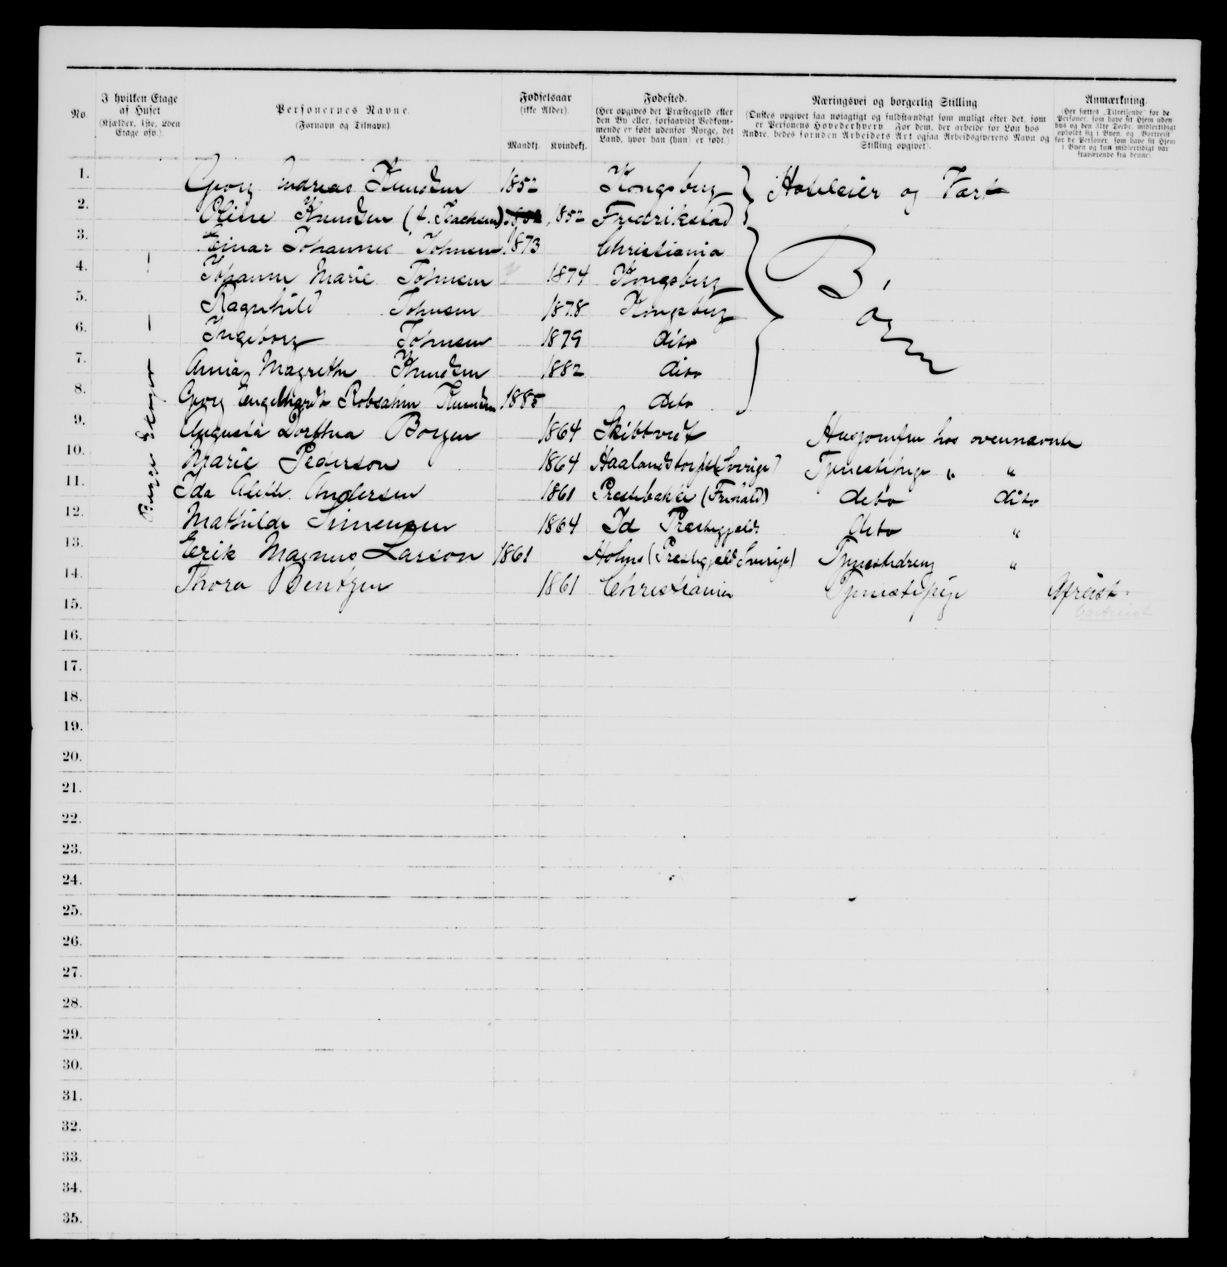 No
I hvilken Etage af Huset (Kjælder, 1ste, 2den Etage osv.).
Personernes Navne. (Fornavn og Tilnavn)
Fødselsaar (ikke Alder).
Mandkj. Kvindekj.
Fødested. (Her opgives det Præstegjeld eller den By eller, forsaavidt Vedkommende er født udenfor Norge, det Land, hvor han (hun) er født.)
Næringsvei og borgerlig Stilling (Ønskes opgivet saa nøiagtigt og fuldstændigt som muligt efter det, som er Personens Hovederhverv. For dem, der arbeide for Løn hos Andre, bedes foruden Arbeidets Art ogsaa Arbeidsgiverens Navn og Stilling opgivet).
Anmærkning.
1. Georg Andreas Knudsen 1852 Kongsberg Hoteleier og Vært
2. Oline Knudsen 1852 Fredrikstad
3. Einar Johannes Johnsen 1873 Christiania
4. Johanne Marie Johnsen 1874 Kongsberg Børn
5. Ragnhild Johnsen 1878 Kongsberg
6. Ingeborg Johnsen 1879 dito
7. Anna Magrethe Knudsen 1882 dito
8. Georg Engelhardt Robsahm Knudsen 1885 dito
9. Augusta Dorthea Borgen 1864 Skibtvedt Husjomfru hos ovennævnte
10. Marie Pederson 1864 (Sverige) Tjenestepige " "
11. Ida Andersen 1861 Prestebakke dito dito
12. Mathilde Simensen 1864 Id Præstegjeld dito "
13. Erik Magnus Larson 1861 Tjenestedreng "
14. Thora Bentzen 1861 Christiania Tjenestepige Afreist
15.
16.
17.
18.
19.
20.
21.
22.
23.
24.
25.
26.
27.
28.
29.
30.
31.
32.
33.
34.
35.